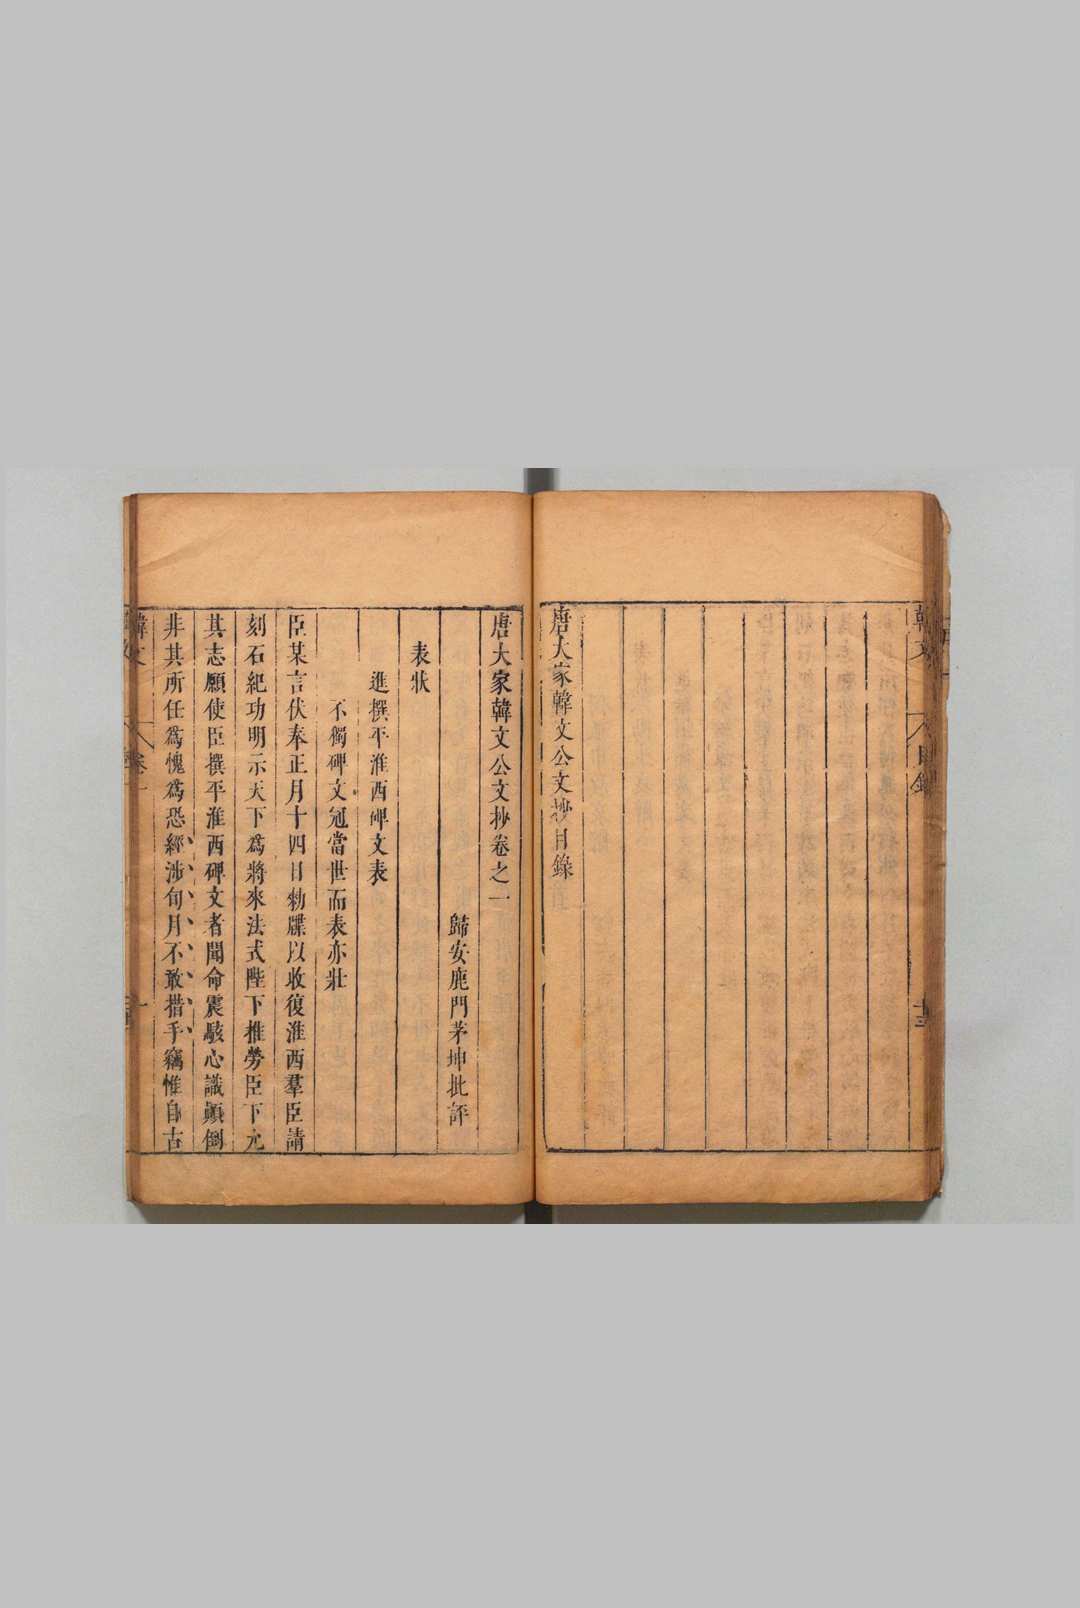 韓文
目錄
十三
唐大家韓文公文抄目錄
唐大家韓文公文抄卷之一
歸安鹿門茅坤批評
表狀
進撰平淮西碑文表
不獨碑文冠當世而表亦壯
臣某言伏奉正月十四日勑牒以收復淮西羣臣請
刻石紀功明示天下爲將來法式陛下推勞臣下允
其志願使臣撰平淮西碑文者聞命震駭心識顛倒
非其所任爲愧爲恐經涉旬月不敢措手竊惟自古
韓文
卷一
一